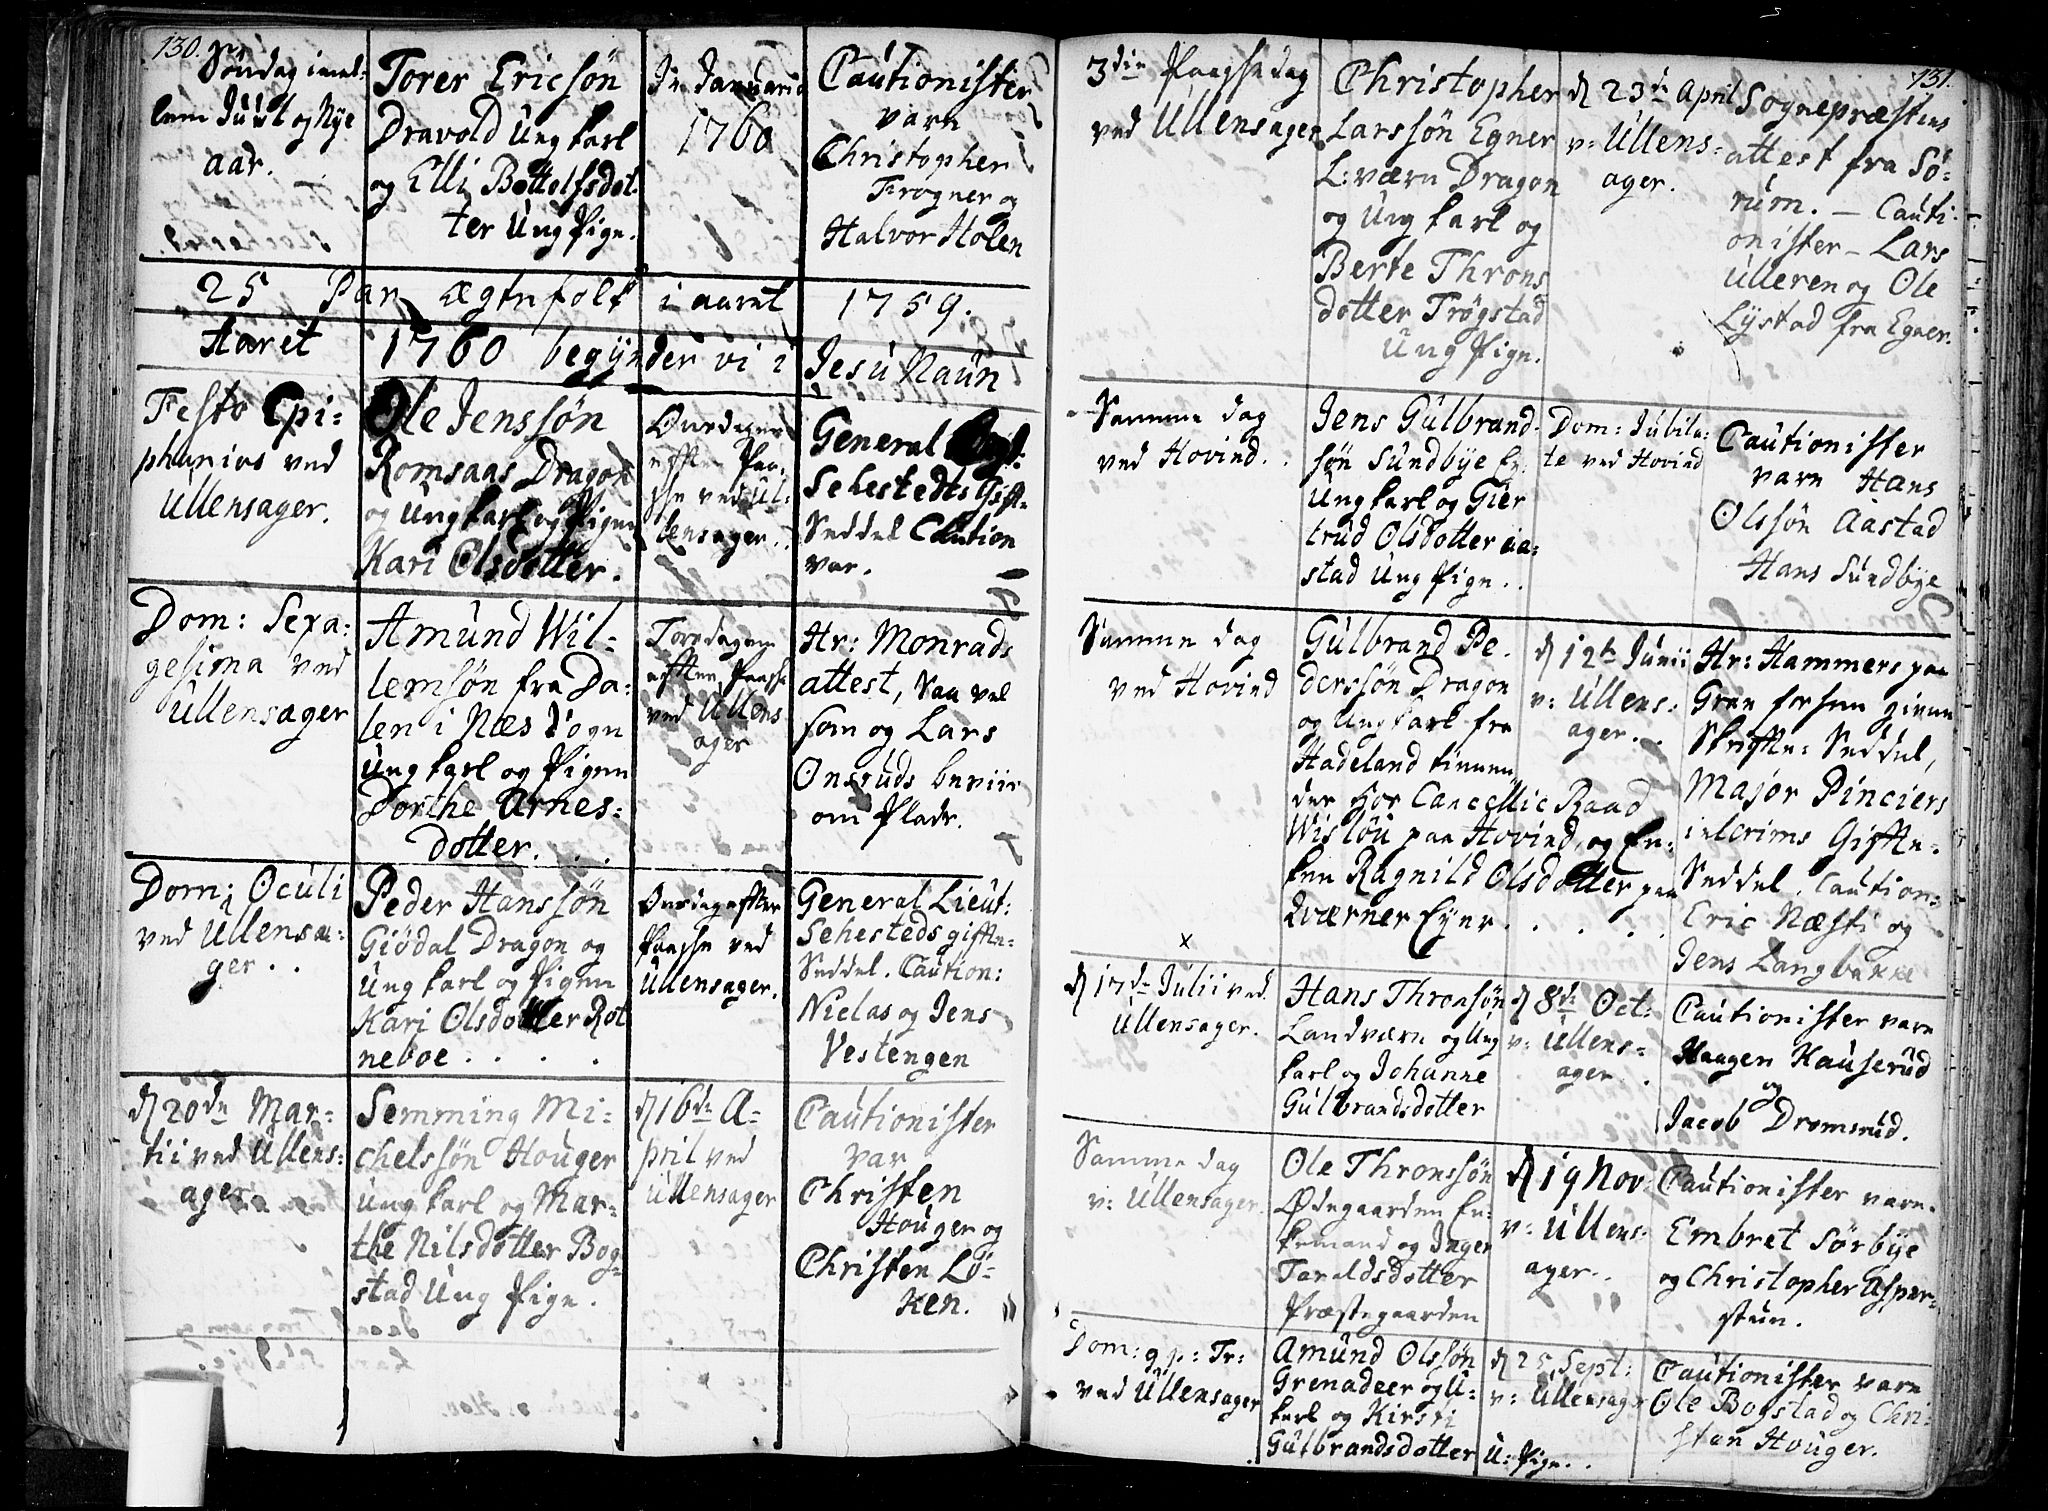 130.
Söndag imel-
lem Juul og Nye
aar. —
Torer Ericsön
Dravold Ung karl
og Elli Bottolfsdot-
ter Ung Pige.
In Januario
1760
Cautionister
vare
Christopher
Frogner og
Halvor Holen
25 Par Ægtefolk i aaret 1759.
Aaret 1760 begynder vi i Jesu Naun
Festo Epi-
phanias ved
Ullensager.
Ole Jenssön
Romsaas Dragon
og Ung karl og Pigen
Kari Olsdotter.
Onsdagen
efter Paa-
ske ved Ul-
lensager.
General
Sehestedts Gifte
Seddel Caution
var.
Dom: Sexa-
gesima ved
Ullensager
Amund Wil-
lemsön fra Da-
len i Næs Sogn
Ung karl og Pigen
Dorthe Arnes-
dotter. . .
Torsdagen
efter Paaske
ved Ullens
ager
Hr: Monrads
attest, saa vel
som og Lars
Onsruds beviis
om Plads.
Dom: Oculi
ved Ullensa-
ger . .
Peder Hanssön
Giödal Dragon og
Ung karl og Pigen
Kari Olsdotter Rot
neboe . . . .
Onsdag efter
Paaske ved
Ullensager.
General Lieut:
Sehesteds gifte-
Seddel. Caution:
Niclas og Jens
Vestengen
d 20de Mar-
tii ved Ullens-
ager
Semming Mi-
chelssön Houger
Ung karl og Mar-
the Nilsdotter Bog-
stad Ung Pige.
d 16de A-
pril ved
Ullensager
Cautionister
var
Christen
Houger og
Christen Lö-
ken.
131.
3die Paaskedag
ved Ullensager
Christopher
Larssön Egner
L: værn Dragon
og Ung karl og
Berte Throns
dotter Trögstad
Ung Pige.
d 23de April
v: Ullens-
ager.
Sognepræstens
attest fra Sö-
rum. — Cauti-
onister — Lars
Ulleren og Ole
Lystad fra Egner.
Samme dag
ved Hovind . .
Jens Gulbrand-
sön Sundbye
Ung karl og Gier
trud Olsdotter Aa-
stad Ung Pige . .
Dom: Jubila-
te ved Hovind
Cautionister
vare Hans
Olssön Aastad
Hans Sundbye
Samme dag
ved Hovind
Gulbrand Pe-
derssön Dragon
og Ung karl fra
Hadeland tienen-
der hos Cancellie Raad
Wislöu paa Hovind, og En-
ken Ragnild Olsdotter paa
Qværner Eyer . . . . .
d 12te Junii
v: Ullens-
ager . .
Hr: Hammers paa
Gran for ham given
Skrifte: Seddel,
Major Pinciers
Gifte-
Seddel. Caution:
Eric Næsti og
Jens Langbakke
x
d 17de Julii ved
Ullensager.
Hans Thronsön
Landværn og Ung
karl og Johanne
Gulbrandsdotter
d 8de Oct:
v: Ullens-
ager . .
Cautionister vare
Haagen Kauserud
og
Jacob Dromsrud.
Samme dag
v: Ullensager.
Ole Thronssön
Ödegaarden En-
kemand og Inger
Taraldsdotter
Præstegaarden
d 19 Nov:
v: Ullens-
ager . .
Cautionister vare
Embret Sörbye
og Christopher Asper-
stun.
Dom: 9 p: Tr:
ved Ullensager
Amund Olssön
Grenadeer og U-
karl og Kirsti
Gulbrandsdotter U: Pige . .
d 25 Sept:
v: Ullensager
Cautionister vare
Ole Bogstad og Chri-
sten Houger.